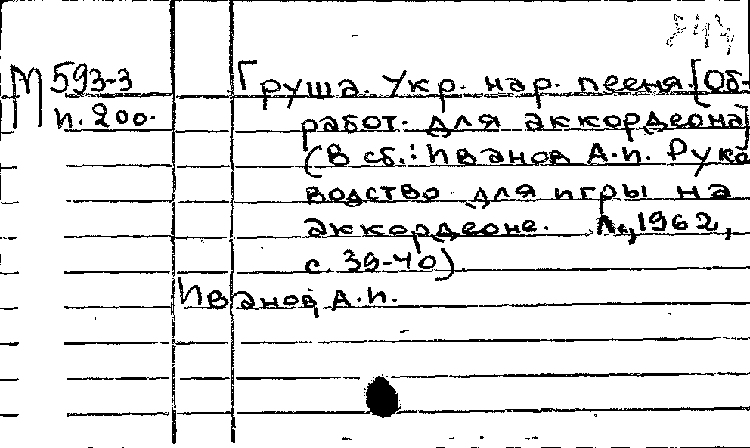 М 593-3 Груша. Укр. нар. песня [Об-
п. 200. работ. для аккордеона]
(В сб.: Иванов А.П. Руко
водство для игры на
аккордеоне. Л., 1962,
с. 39-40)
Иванов, А.П.